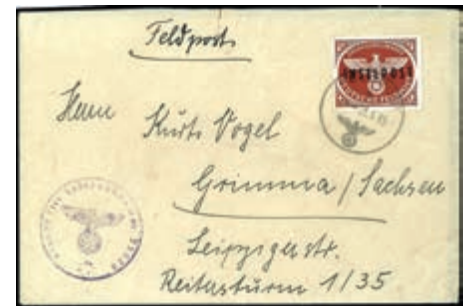 Feldpost
INSELPOST
Herrn
Kurt Vogel
Grimma / Sachsen
Leipzigerstr.
1/35